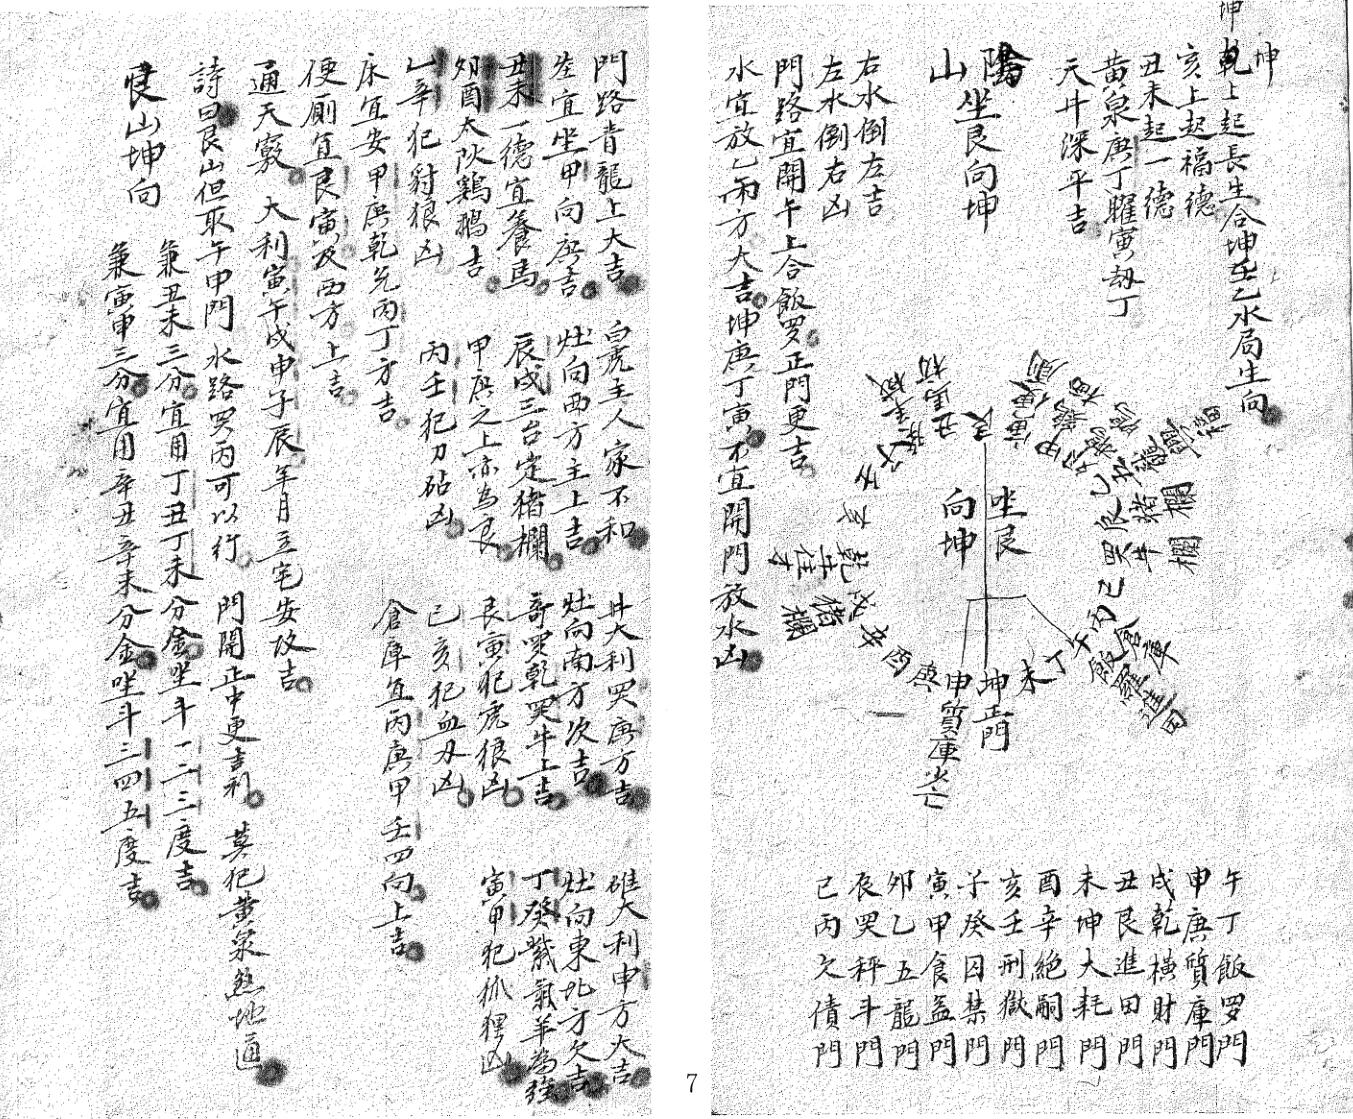 坤
坤乾上起長生合坤在乙水局生向
亥上起福德
丑未起一德
黃泉庚丁曜寅劫丁
天井深平吉
陽山 坐艮向坤
右水倒左吉
左水倒右凶
門路宜開午上合飯罗正門更吉
水宜放乙丙方大吉坤庚丁寅不宜開門放水凶
坐艮
向坤
艮
寅
甲
卯
乙
辰
巽
巳
丙
午
丁
未
坤正門
申質庫
庚
酉
辛
戌猪欄
乾
亥
丑
倉庫
牛欄
午丁飯罗門
申庚質庫門
戌乾橫財門
丑艮進田門
未坤大耗門
酉辛絕嗣門
亥壬刑獄門
子癸囚禁門
寅甲食益門
卯乙五龍門
辰巽秤斗門
巳丙欠債門
門路青龍上大吉 白虎主人家不和 井大利巽庚方吉 碓大利申方大吉
宜坐甲向庚吉 灶向西方主上吉 灶向南方次吉 灶向東北方欠吉
丑未一德宜養馬 辰戌三台定猪欄 巽乾巽牛上吉 丁癸羊為強
夘酉太阦鷄鵝吉 甲庚之上亦為良 艮寅犯虎狼凶 寅甲犯狐狸凶
乙辛犯豺狼凶 丙壬犯刀砧凶 巳亥犯血刃凶
床宜安甲庚乾兑丙丁方吉 倉庫宜丙庚甲壬四向上吉
便廁宜艮寅及西方上吉
通天竅 大利寅午戌申子辰年月主宅安坟吉
詩曰艮山但取午申門 水路巽丙可以行 門開正中更吉利 莫犯黃泉煞地逼
艮山坤向
兼丑未三分宜用丁丑丁未分金坐斗一二三度吉
兼寅申三分宜用辛丑辛未分金坐斗三四五度吉
7